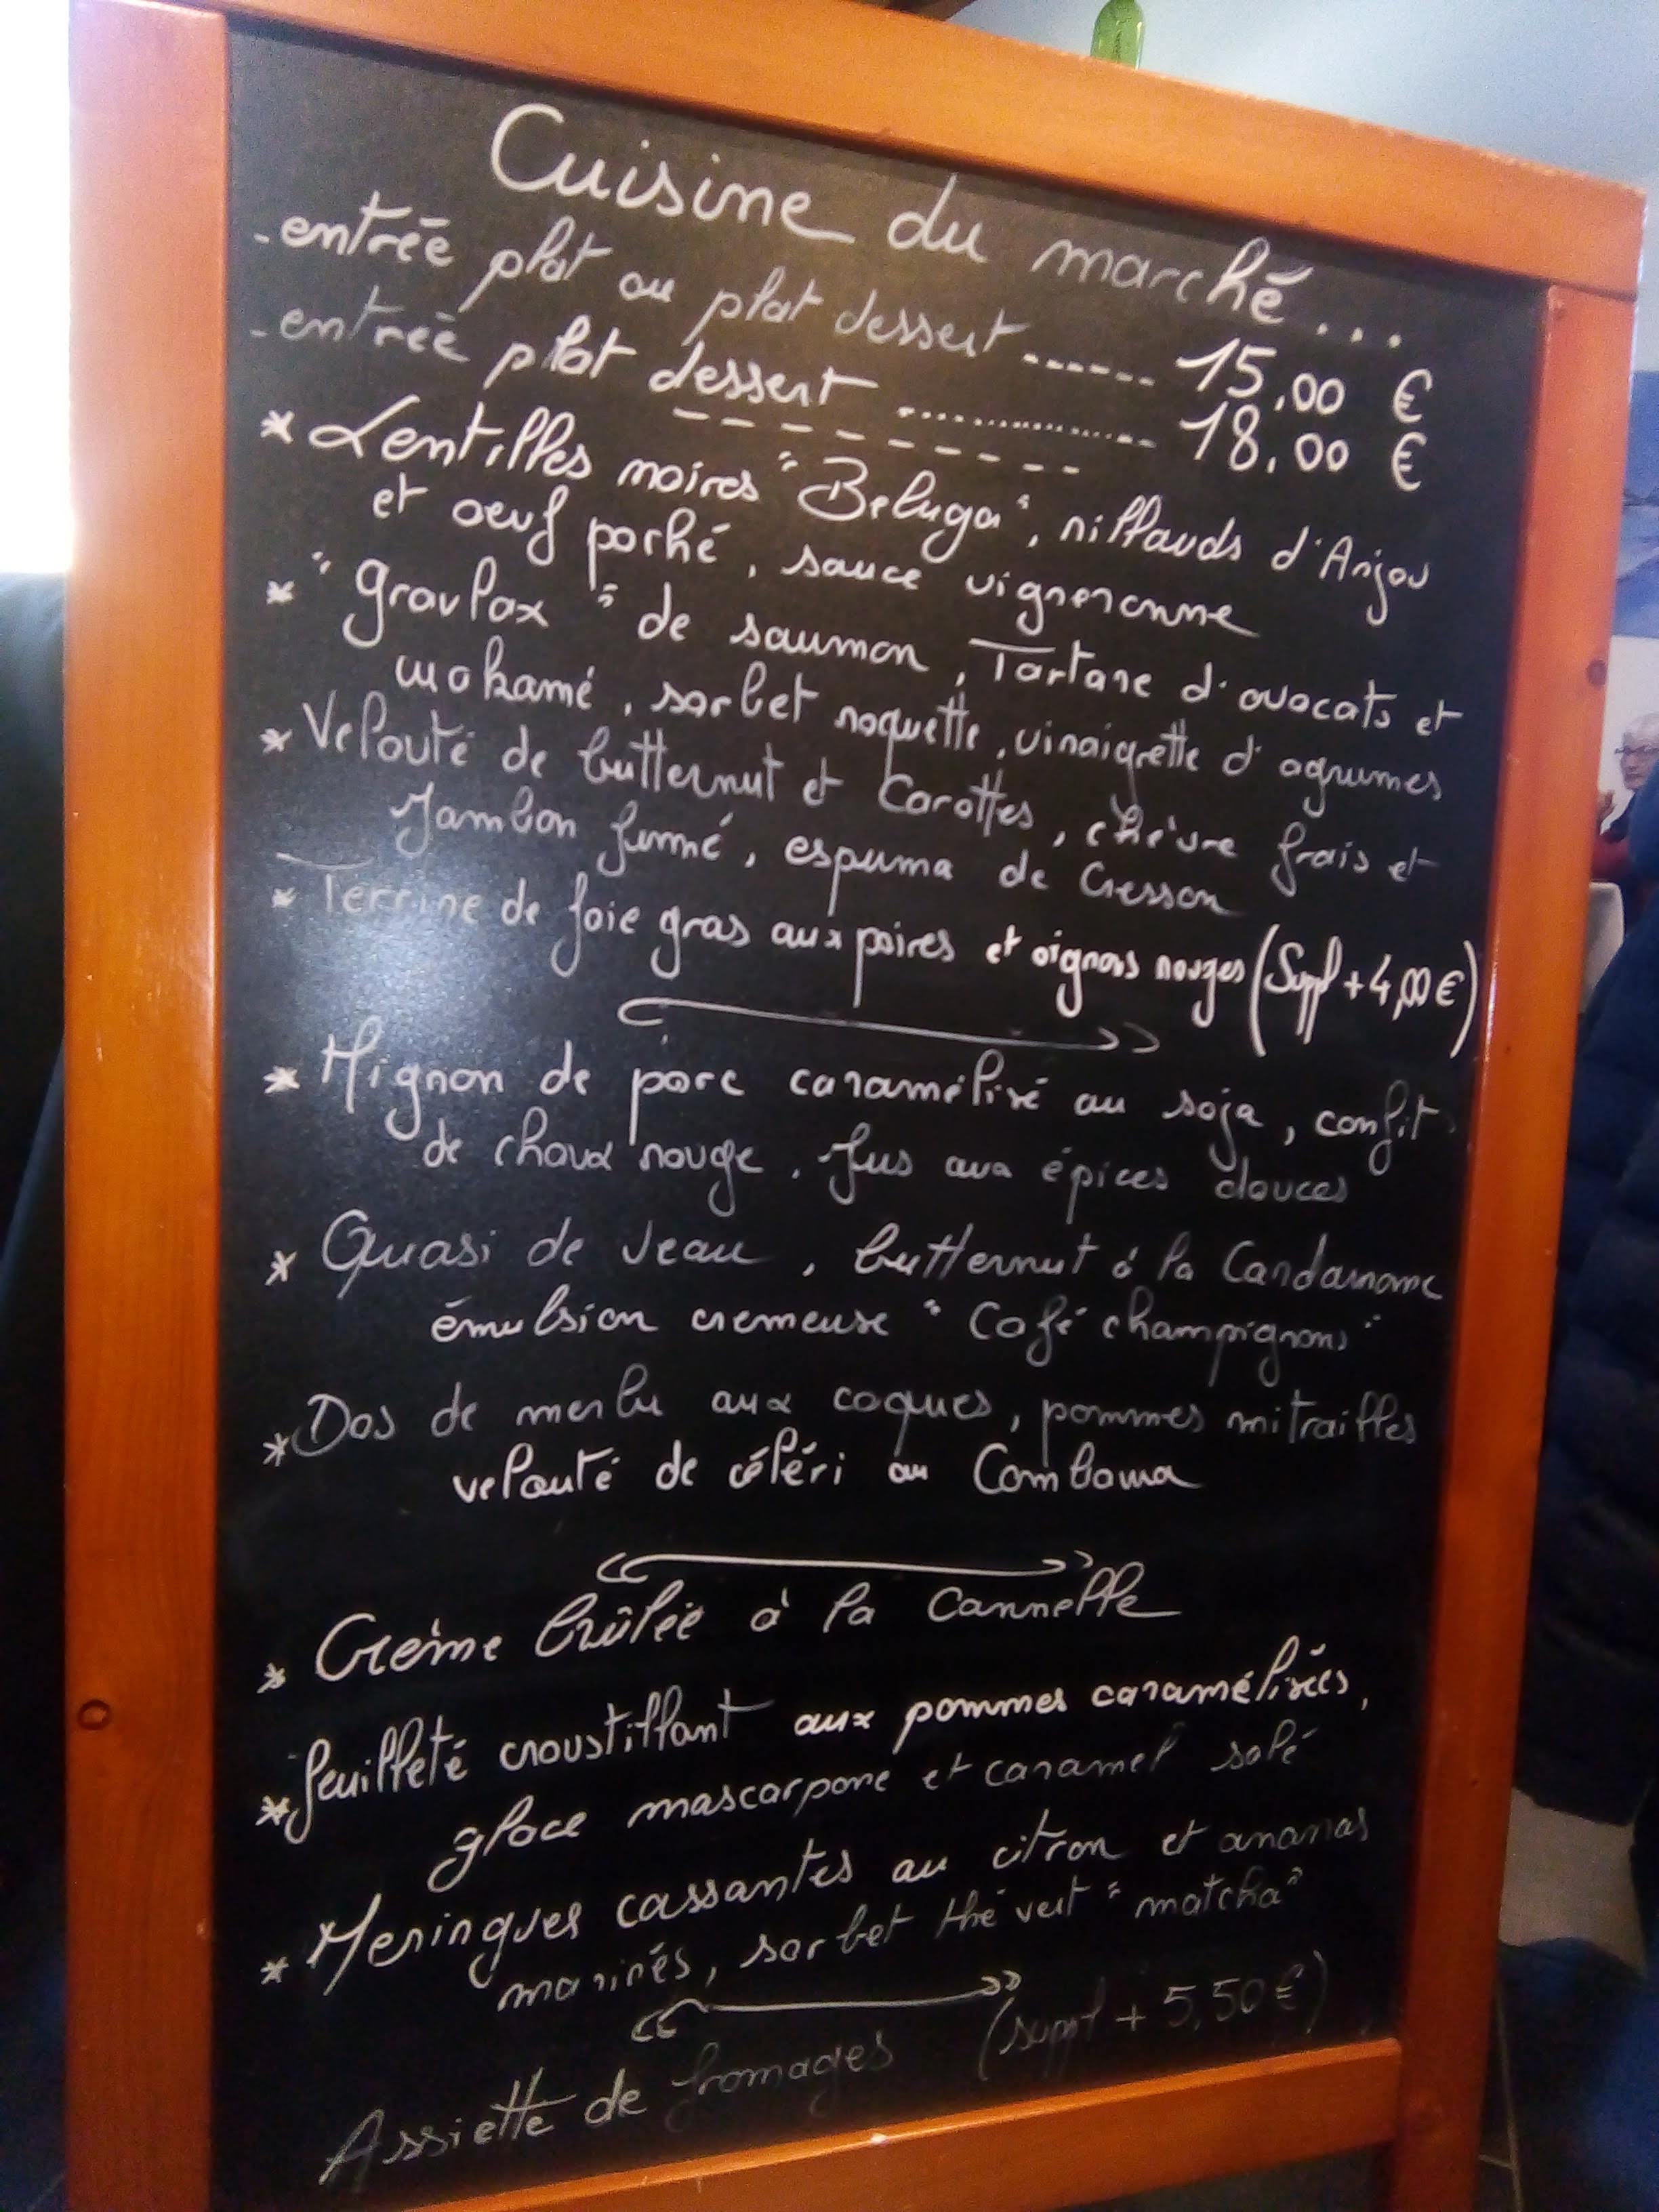 Cuisine du marché...
- entrée plat ou plat dessert ------ 15,00 €
- entrée plat dessert ................ 18,00 €
* Lentilles noires "Beluga", rillauds d'Anjou
et oeuf poché, sauce vigneronne
* "gravlax" de saumon, Tartare d'avocats et
wakamé, sorbet roquette, vinaigrette d'agrumes
* Velouté de butternut et Carottes, chèvre frais et
Jambon fumé, espuma de Cresson
* Terrine de foie gras aux poires et oignons rouges (Suppl + 4,00 €)
* Mignon de porc caramélisé au soja, confit
de choux rouge, Jus aux épices douces
* Quasi de veau, butternut à la Cardamome
émulsion cremeuse "Café champignons"
* Dos de merlu aux coques, pommes mitrailles
velouté de céléri au Combawa
* Crème brûlée à la Cannelle
* feuilleté croustillant aux pommes caramélisées,
glace mascarpone et caramel salé
* Meringues cassantes au citron et ananas
marinés, sorbet thé vert "matcha"
Assiette de fromages (suppl + 5,50 €)